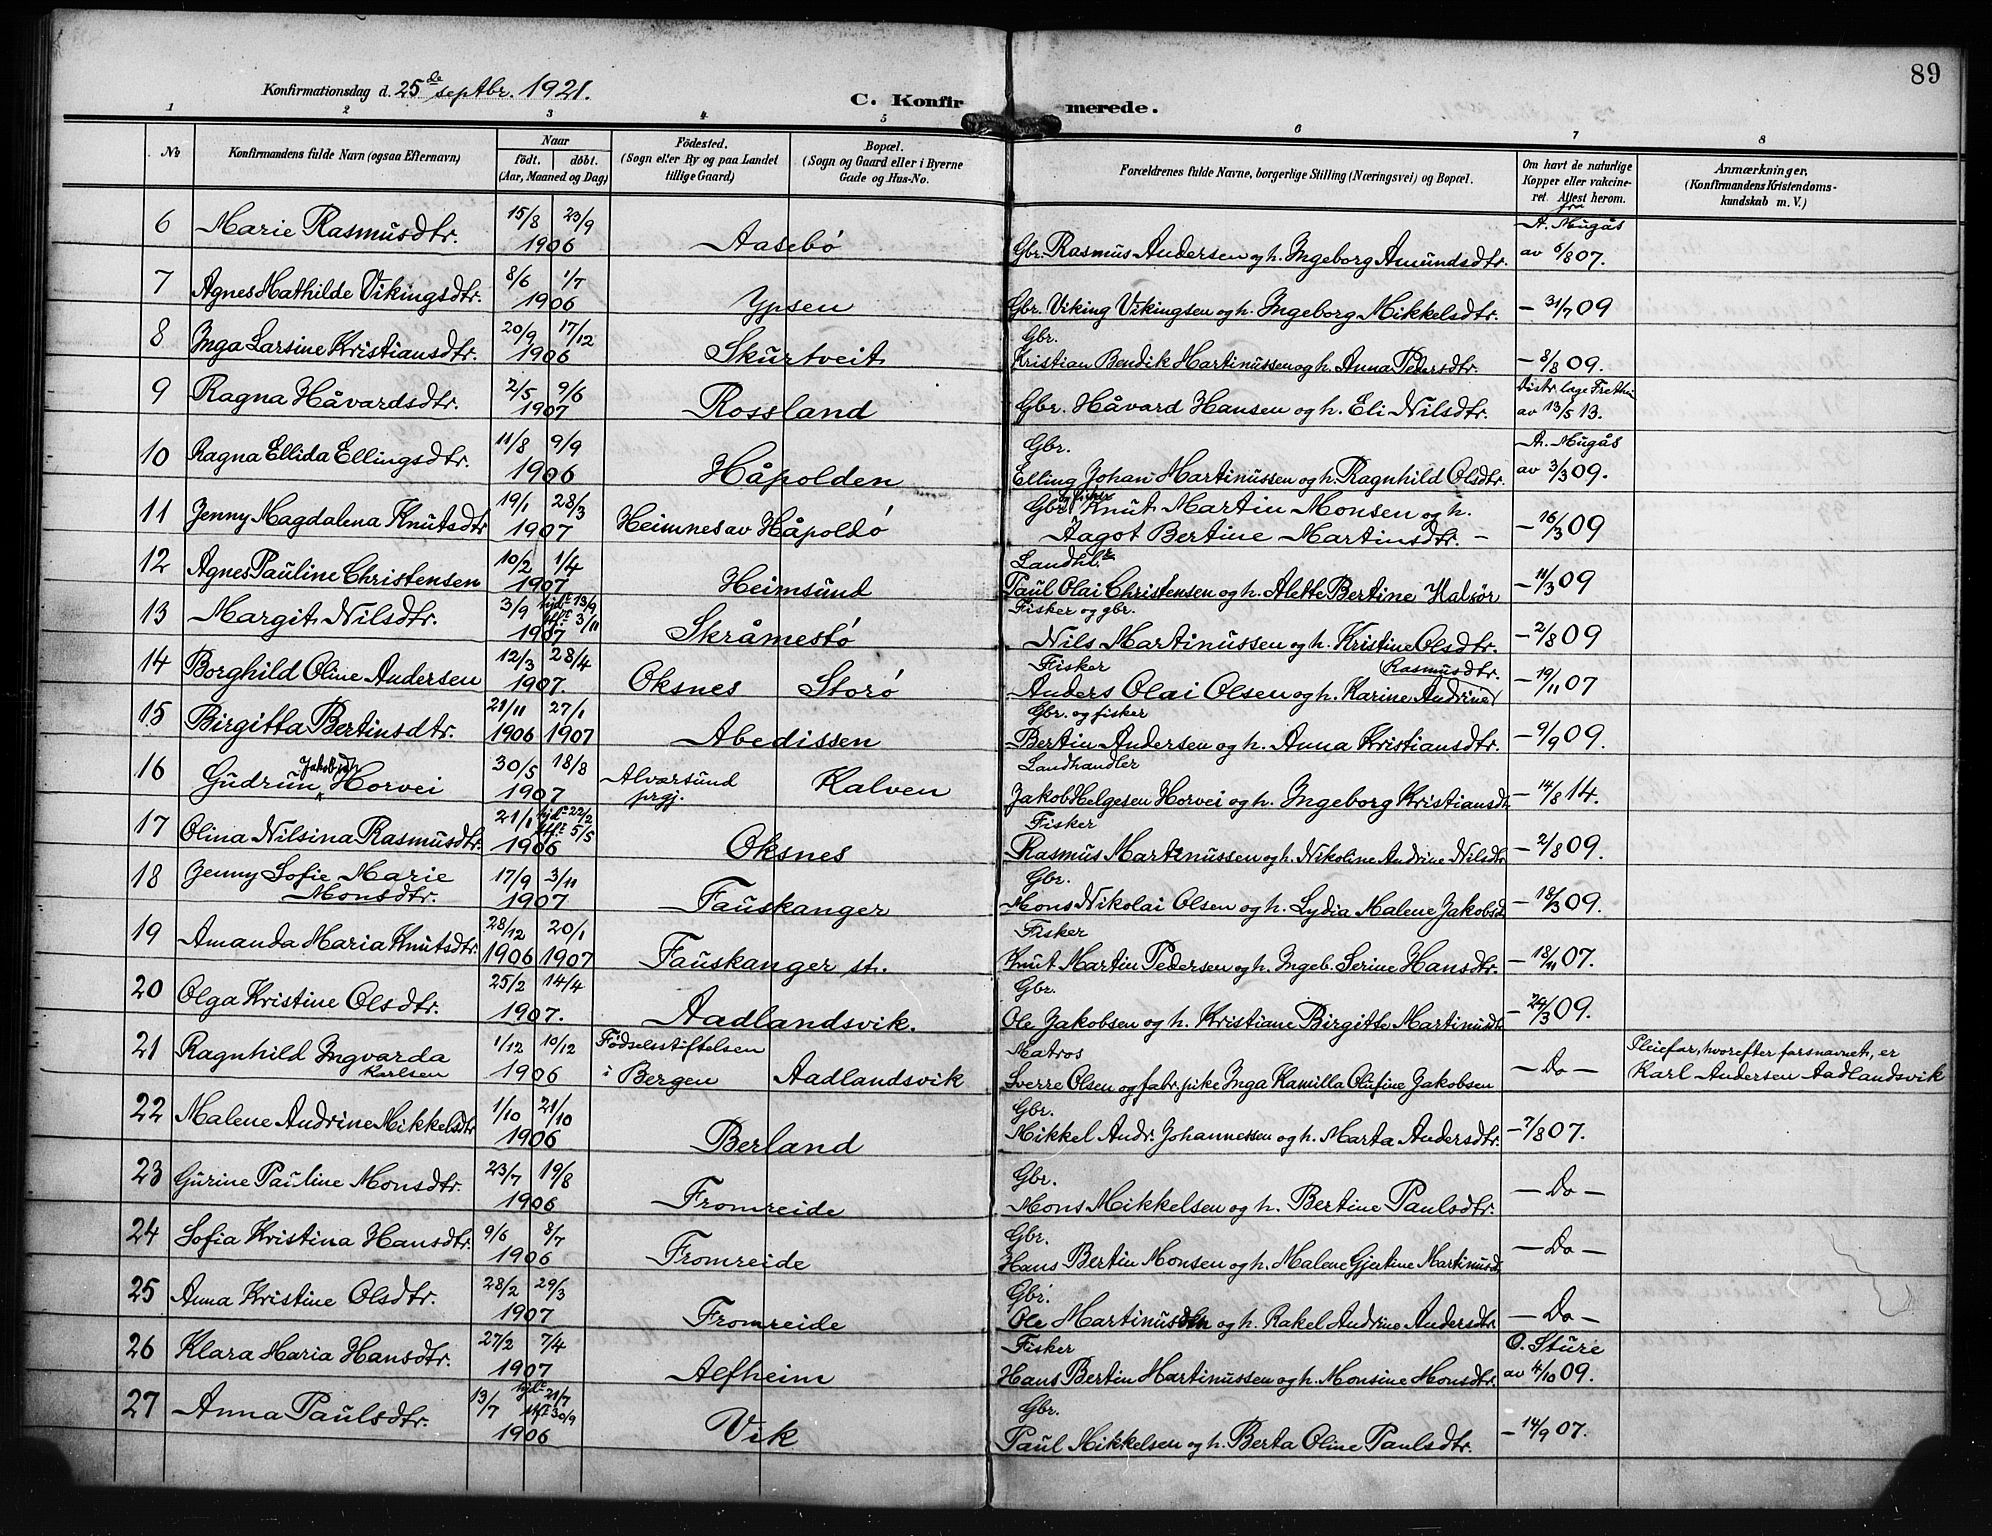 89
Konfirmationsdag d. 25de septbr. 1921.
C. Konfirmerede.
1 2 3 4 5 6 7 8
No
Konfirmandens fulde Navn (ogsaa Efternavn)
Naar
födt. döbt.
(Aar, Maaned og Dag)
Födested.
(Sogn eller By og paa Landet
tillige Gaard)
Bopæl.
(Sogn og Gaard eller i Byerne
Gade og Hus-No.
Forældrenes fulde Navne, borgerlige Stilling (Næringsvei) og Bopæl.
Om havt de naturlige
Kopper eller vakcine-
ret. Attest herom.
Anmærkninger.
(Konfirmandens Kristendoms-
kundskab m. V.)
6 Marie Rasmusdtr. 15/8 23/9 1906 Aasebö Gbr. Rasmus Andersen og h. Ingeborg Amundsdtr. fra A. Mugås av 6/8 07.
7 Agnes Mathilde Vikingsdtr. 8/6 1/7 1906 Ypsen Gbr. Viking Vikingsen og h. Ingeborg Mikkelsdtr. — 31/7 09
8 Inga Larsine Kristiansdtr. 20/9 17/12 1906 Skurtveit Gbr.
Kristian Bendik Martinussen og h. Anna Pedersdtr. — 8/8 09.
9 Ragna Håvardsdtr. 2/5 9/6 1907 Rossland Gbr. Håvard Hansen og h. Eli Nilsdtr. Distr. læge av 13/5 13.
10 Ragna Ellida Ellingsdtr. 11/8 9/9 1906 Håpolden Gbr.
Elling Johan Martinussen og h. Ragnhild Olsdtr. A. Mugås av 3/3 09.
11 Jenny Magdalena Knutsdtr 19/1 28/3 1907 Heimnes av Håpoldö Gbr. og fisker Knut Martin Monsen og h.
Dagot Bertine Martinsdtr. — — 16/3 09
12 Agnes Pauline Christensen 10/2 1/4 1907 Heimsund Landhl.
Paul Olai Christensen og h. Alette Bertine Halsör — 11/3 09
13 Margit Nilsdtr. 3/9 hjd. 13/9 stf. 3/11 1907 Skråmestö Fisker og gbr.
Nils Martinussen og h. Kristine Olsdtr. — 2/8 09
14 Borghild Oline Andersen 12/3 28/4 1907. Oksnes Storö Fisker
Anders Olai Olsen og h. Karine Andrine Rasmusdtr. — 19/11 07
15 Birgitta Bertinsdtr. 21/11 1906 27/1 1907 Abedissen Gbr. og fisker
Bertin Andersen og h. Anna Kristiansdtr. — 9/9 09.
16 Gudrun Jakobsdtr Horvei 30/5 18/8 1907 Alversund prgj. Kalven Landhandler
Jakob Helgesen Horvei og h. Ingeborg Kristiansdt. — 14/8 14.
17 Olina Nilsina Rasmusdtr. 21/1 hjd. 22/2 stf. 5/5 1906 Oksnes Fisker
Rasmus Martinussen og h. Nikoline Andrine Nilsdtr — 2/8 09.
18 Jenny Sofie Marie
Monsdtr. 17/9 3/11 1907 Fauskanger Gbr.
Mons Nikolai Olsen og h. Lydia Malene Jakobsd. — 18/3 09.
19 Amanda Maria Knutsdtr. 28/12 1906 20/1 1907 Fauskanger st. Fisker
Knut Martin Pedersen og h. Ingeb. Serine Hansdtr. — 18/11 07.
20 Olga Kristine Olsdtr. 25/2 14/4 1907. Aadlandsvik. Gbr.
Ole Jakobsen og h. Kristiane Birgitte Martinusdt. — 24/3 09.
21 Ragnhild Ingvarda
Karlsen 1/12 10/12 1906 Födselsstiftelsen
i Bergen Aadlandsvik Matros
Sverre Olsen og fabr. pike Inga Kamilla Olufine Jakobsen — Do — Pleiefar, hvorefter farsnavnet, er
Karl Andersen Aadlandsvik
22 Malene Andrine Mikkelsdtr 1/10 21/10 1906 Berland Gbr.
Mikkel Andr. Johannessen og h. Marta Andersdtr. — 7/8 07.
23 Gurine Pauline Monsdtr. 23/7 19/8 1906 Fromreide Gbr.
Mons Mikkelsen og h. Bertine Paulsdtr. — Do —
24 Sofia Kristina Hansdtr. 9/6 8/7 1906 Fromreide Gbr.
Hans Bertin Monsen og h. Malene Gjertine Martinusd. — Do —
25 Anna Kristine Olsdtr. 28/2 29/3 1907 Fromreide Gbr.
Ole Martinussen og h. Rakel Andrine Andersdtr — Do —
26 Klara Maria Hansdtr. 27/2 7/4 1907 Aefheim Fisker
Hans Bertin Martinussen og h. Monsine Monsdtr. O. Sture av 4/10 09.
27 Anna Paulsdtr. 13/7 hjd. 21/7 stf. 30/9 1906 Vik Gbr.
Paul Mikkelsen og h. Berta Oline Paulsdtr. — 14/9 07.